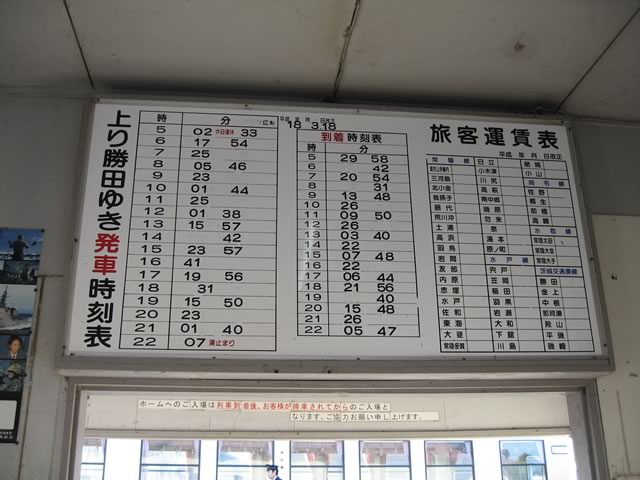 上り勝田ゆき発車時刻表
時 分
5 02 休日運休 33
6 17 54
7 25
8 05 46
9 23
10 01 44
11 25
12 01 38
13 15 57
14 42
15 23 57
16 41
17 19 56
18 31
19 15 50
20 23
21 01 40
22 07 湊止まり
平成 年 月 日改正
18 3.18
到着時刻表
時 分
5 29 58
6 42
7 20 54
8 31
9 13 48
10 26
11 09 50
12 26
13 03 40
14 22
15 07 48
16 22
17 06 44
18 21 56
19 40
20 15 48
21 26
22 05 47
旅客運賃表
平成 年 月 日改正
常磐線 日立 結城
小木津 小山
三河島 川尻 両毛線
北小金 高萩 佐野
我孫子 南中郷 桐生
藤代 磯原 前橋
荒川沖 勿来 高崎
土浦 泉 水郡線
高浜 湯本 常陸太田
羽鳥 原ノ町 常陸大宮
岩間 水戸線 常陸大子
友部 宍戸 茨城交通湊線
内原 笠間 勝田
赤塚 稲田 金上
水戸 羽黒 中根
佐和 岩瀬 那珂湊
東海 大和 殿山
大甕 下館 平磯
常陸多賀 川島 磯崎
ホームへのご入場は列車到着後、お客様が降車されてからのご入場と
なります。ご協力お願い申し上げます。